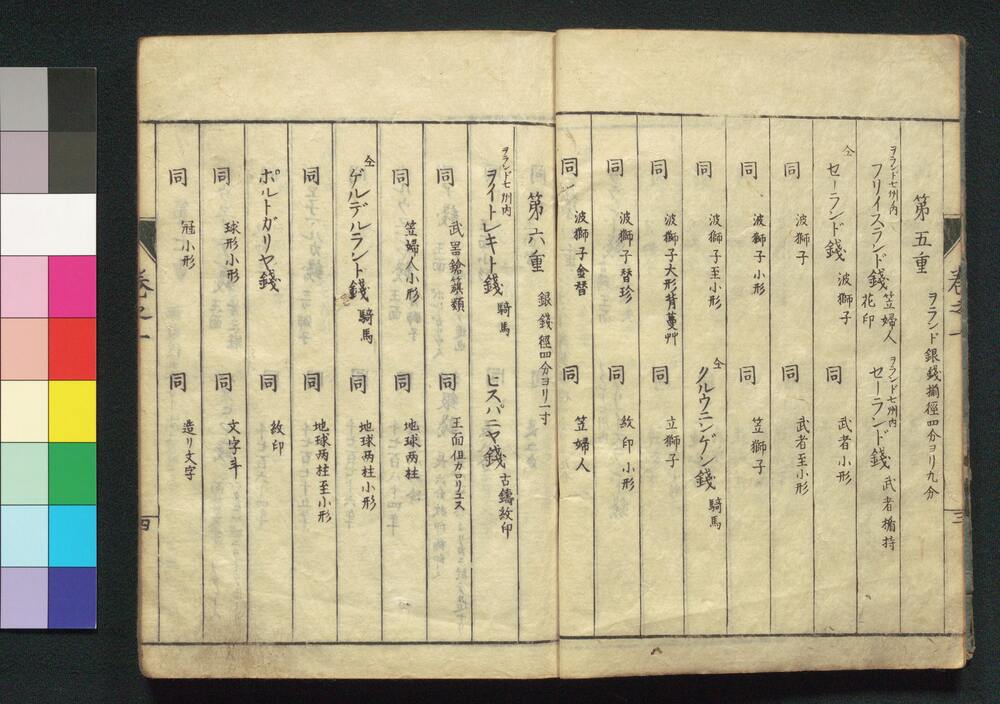 第五重　ヲランド銀錢揃徑四分ヨリ九分
ヲランド七州内 フリイスランド錢 笠婦人 花印　ヲランド七州内 セーランド錢 武者楯持
仝 セーランド錢 波獅子　同 武者小形
同 波獅子　同 武者至小形
同 波獅子小形　同 笠獅子
同 波獅子至小形　仝 クルウニンゲン錢 騎馬
同 波獅子大形背蔓艸　同 立獅子
同 波獅子替珍　同 紋印小形
同 波獅子金替　同 笠婦人
卷之一
三
第六重　銀錢徑四分ヨリ一寸
ヲランド七州内 ヲイトレキト錢 騎馬　ヒスパニヤ錢 古鑄紋印
同 武器鎗籏類　同 王面但カロリュス
同 笠婦人小形　同 地球両柱
仝 ゲルデルラント錢 騎馬　同 地球両柱小形
同　同 地球両柱至小形
ポルトガリヤ錢　同 紋印
同 球形小形　同 文字斗
同 冠小形　同 造り文字
卷之一
四